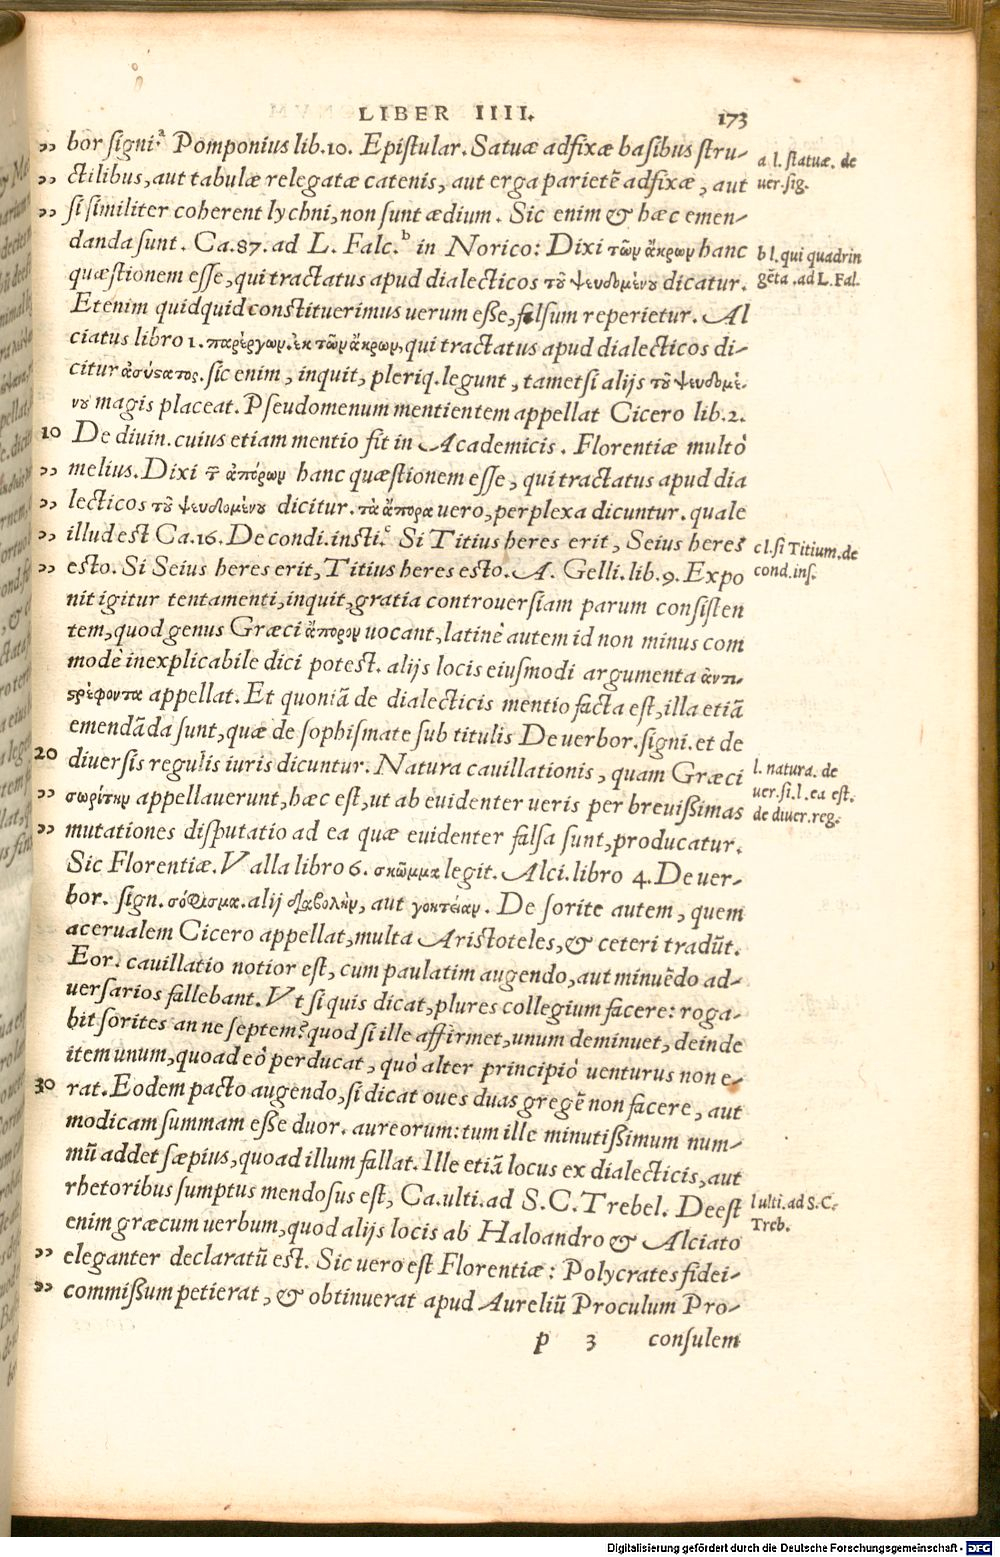 LIBER IIII. 173
,, bor signi.ᵃ Pomponius lib.10. Epistular. Satuæ adfixæ basibus stru-
,, ctilibus, aut tabulæ relegatæ catenis, aut erga parietē adfixæ, aut
,, si similiter coherent lychni, non sunt ædium. Sic enim & hæc emen-
danda sunt. Ca.87. ad L. Falc.ᵇ in Norico: Dixi τῶν ἄκρων hanc
quæstionem esse, qui tractatus apud dialecticos τοῦ ψευδομένου dicatur.
Etenim quidquid constituerimus uerum esse, falsum reperietur. Al
ciatus libro 1. παρέργων. ἐκ τῶν ἄκρων, qui tractatus apud dialecticos di-
citur ἀσύστατος. sic enim, inquit, pleriq. legunt, tametsi alijs τοῦ ψευδομέ-
νου magis placeat. Pseudomenum mentientem appellat Cicero lib.2.
10 De diuin. cuius etiam mentio fit in Academicis. Florentiæ multò
,, melius. Dixi τῶν ἀπόρων hanc quæstionem esse, qui tractatus apud dia
,, lecticos τοῦ ψευδομένου dicitur. τὰ ἄπορα uero, perplexa dicuntur. quale
,, illud est Ca.16. De condi. insti.ᶜ Si Titius heres erit, Seius heres
,, esto. Si Seius heres erit, Titius heres esto. A. Gelli. lib. 9. Expo
nit igitur tentamenti, inquit, gratia controuersiam parum consisten
tem, quod genus Græci ἄπορον uocant, latinè autem id non minus com
modè inexplicabile dici potest. alijs locis eiusmodi argumenta ἀντι-
στρέφοντα appellat. Et quoniā de dialecticis mentio facta est, illa etiā
emendāda sunt, quæ de sophismate sub titulis De uerbor. signi. et de
20 diuersis regulis iuris dicuntur. Natura cauillationis, quam Græci
,, σωρίτην appellauerunt, hæc est, ut ab euidenter ueris per breuissimas
,, mutationes disputatio ad ea quæ euidenter falsa sunt, producatur.
Sic Florentiæ. Valla libro 6. σκῶμμα legit. Alci. libro 4. De uer-
bor. sign. σόφισμα. alij διαβολὴν, aut γοητείαν. De sorite autem, quem
acerualem Cicero appellat, multa Aristoteles, & ceteri tradūt.
Eor. cauillatio notior est, cum paulatim augendo, aut minuēdo ad-
uersarios fallebant. Vt si quis dicat, plures collegium facere: roga-
bit sorites an ne septem? quod si ille affirmet, unum deminuet, deinde
item unum, quoad eò perducat, quò alter principiò uenturus non e-
30 rat. Eodem pacto augendo, si dicat oues duas gregē non facere, aut
modicam summam esse duor. aureorum: tum ille minutissimum num-
mū addet sæpius, quoad illum fallat. Ille etiā locus ex dialecticis, aut
rhetoribus sumptus mendosus est, Ca. ulti. ad S.C. Trebel. Deest
enim græcum uerbum, quod alijs locis ab Haloandro & Alciato
,, eleganter declaratū est. Sic uero est Florentiæ: Polycrates fidei-
,, commissum petierat, & obtinuerat apud Aureliū Proculum Pro-
p 3 consulem
a l. statuæ. de
uer. sig.
b l. qui quadrin
gēta. ad L. Fal.
c l. si Titium. de
cond. ins.
l. natura. de
uer. si. l. ea est.
de diuer. reg.
l ulti. ad S.C.
Treb.
Digitalisierung gefördert durch die Deutsche Forschungsgemeinschaft - DFG